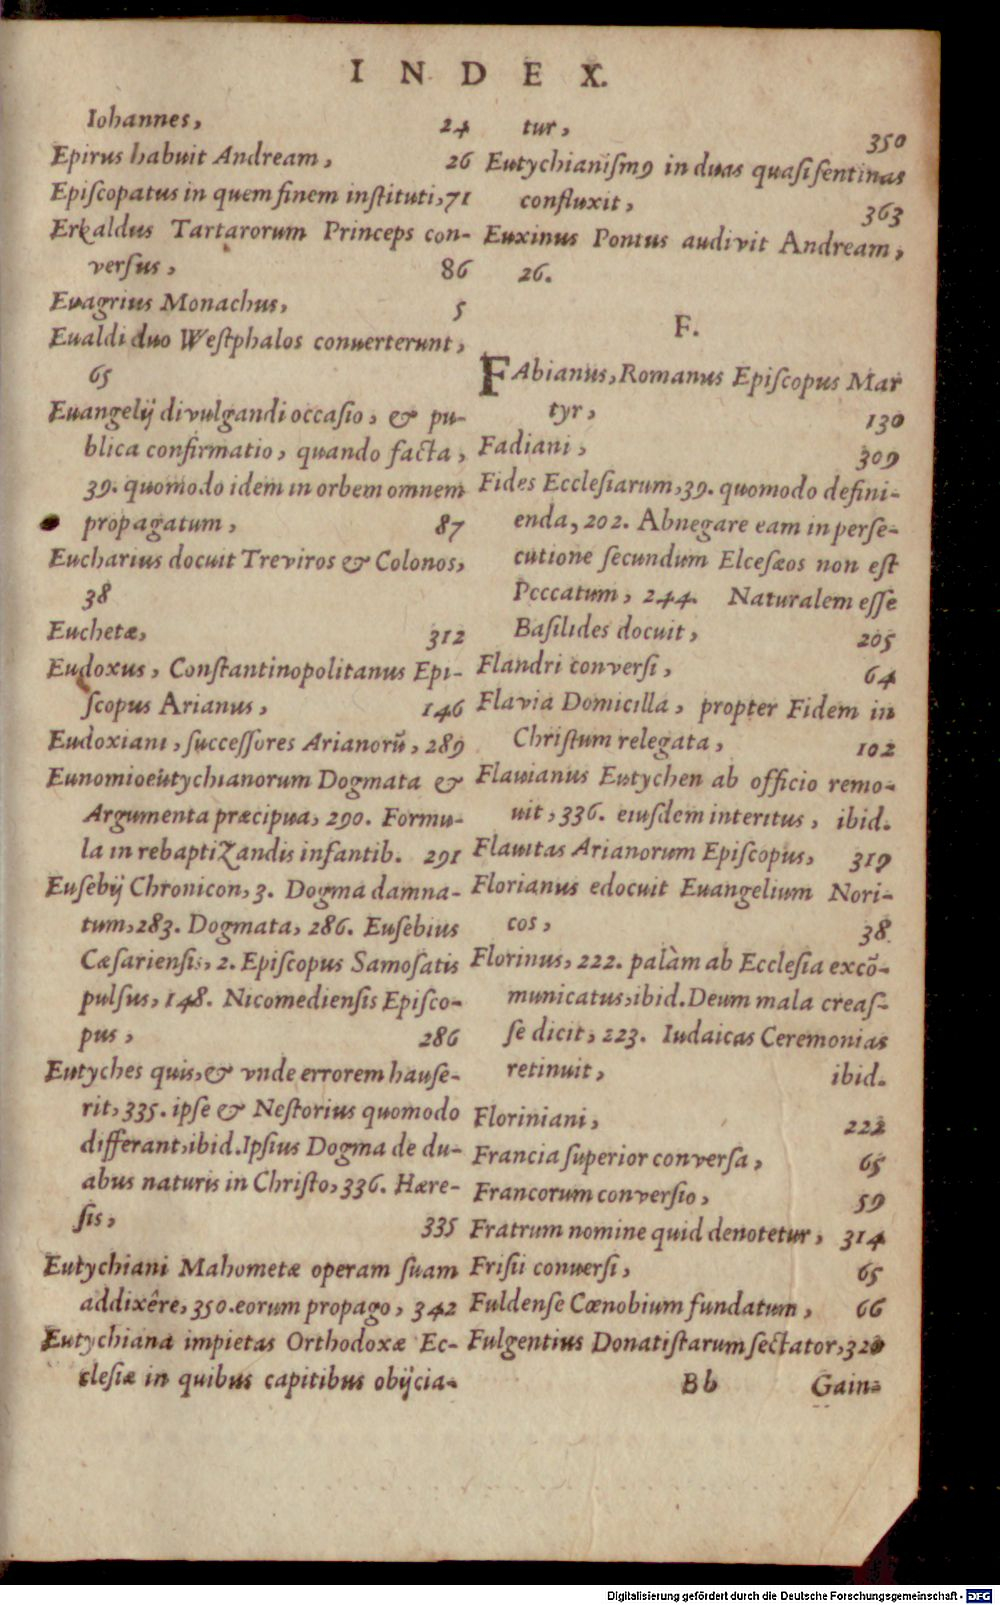 INDEX.
Iohannes, 24
Epirus habuit Andream, 26
Epiſcopatus in quem finem inſtituti, 71
Erkaldus Tartarorum Princeps con-
verſus, 86
Euagrius Monachus, 5
Eualdi duo Weſtphalos conuerterunt,
65
Euangelij divulgandi occaſio, & pu-
blica confirmatio, quando facta,
39. quomodo idem in orbem omnem
propagatum, 87
Eucharius docuit Treviros & Colonos,
38
Euchetæ, 312
Eudoxus, Conſtantinopolitanus Epi-
ſcopus Arianus, 146
Eudoxiani, ſucceſſores Arianorū, 289
Eunomioeutychianorum Dogmata &
Argumenta præcipua, 290. Formu-
la in rebaptizandis infantib. 291
Euſebij Chronicon, 3. Dogma damna-
tum, 283. Dogmata, 286. Euſebius
Cæſarienſis, 2. Epiſcopus Samoſatis
pulſus, 148. Nicomedienſis Epiſco-
pus, 286
Eutyches quis, & vnde errorem hauſe-
rit, 335. ipſe & Neſtorius quomodo
differant, ibid. Ipſius Dogma de du-
abus naturis in Chriſto, 336. Hære-
ſis, 335
Eutychiani Mahometæ operam ſuam
addixêre, 350. eorum propago, 342
Eutychiana impietas Orthodoxæ Ec-
cleſiæ in quibus capitibus obijcia-
tur, 350
Eutychianiſmꝰ in duas quaſi ſentinas
confluxit, 363
Euxinus Pontus audivit Andream,
26.
F.
FAbianus, Romanus Epiſcopus Mar
tyr, 130
Fadiani, 309
Fides Eccleſiarum, 39. quomodo defini-
enda, 202. Abnegare eam in perſe-
cutione ſecundum Elceſæos non eſt
Peccatum, 244. Naturalem eſſe
Baſilides docuit, 205
Flandri converſi, 64
Flavia Domicilla, propter Fidem in
Chriſtum relegata, 102
Flauianus Eutychen ab officio remo-
uit, 336. eiuſdem interitus, ibid.
Flauitas Arianorum Epiſcopus, 319
Florianus edocuit Euangelium Nori-
cos, 38.
Florinus, 222. palàm ab Eccleſia excō-
municatus, ibid. Deum mala creaſ-
ſe dicit, 223. Iudaicas Ceremonias
retinuit, ibid.
Floriniani, 222
Francia ſuperior converſa, 65
Francorum converſio, 59
Fratrum nomine quid denotetur, 314
Friſii conuerſi, 65
Fuldenſe Cœnobium fundatum, 66
Fulgentius Donatiſtarum ſectator, 320
Bb Gain-
Digitalisierung gefördert durch die Deutsche Forschungsgemeinschaft - DFG